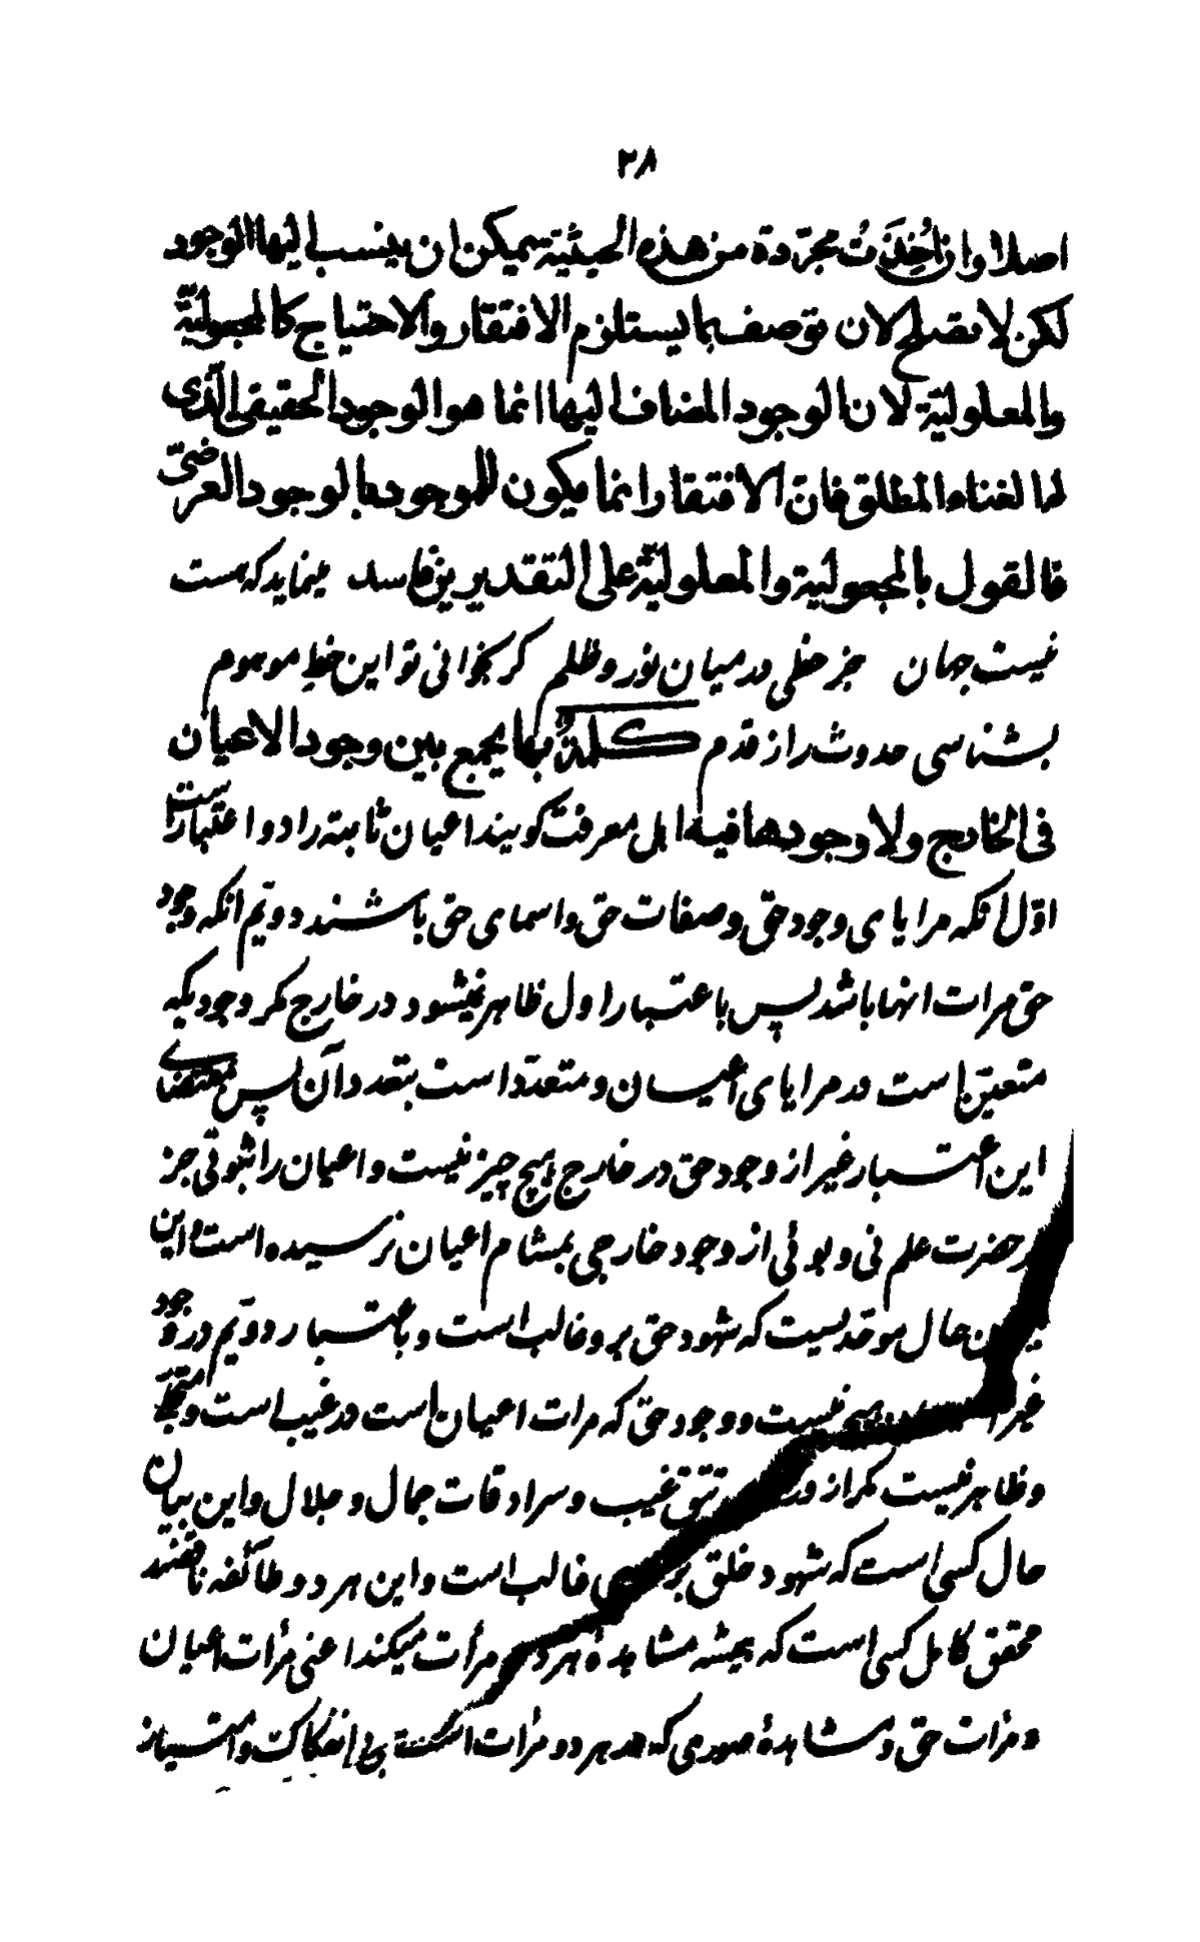 ۲۸
اصلا وان اُخِذَتْ مجرّدة من هذه الحيثية يمكن ان ينسب اليها الوجود
لكن لا تصلح لان توصف بما يستلزم الافتقار والاحتياج كالمجعوليّة
والمعلوليّة لان الوجود المضاف اليها انما هو الوجود الحقيقى الّذى
له الغناء المطلق فانّ الافتقار انما يكون للموجود بالوجود العرضىّ
فالقول بالمجعولية والمعلوليّة على التقديرين فاسد مینماید که هست
نیست جهان جز خطی درمیان نور و ظلم کر بخوانی تو این خطِ موهوم
بشناسی حدوث را از قدم كلمةٌ بها يجمع بين وجود الاعيان
فى الخارج ولا وجودها فيه اهل معرفت کویند اعیان ثابته را دو اعتبار است
اوّل انکه مرایا ی وجود حق و صفات حق و اسمای حق باشند دوّیم انکه وجود
حق مرات انها باشد پس باعتبار اول ظاهر نمیشود در خارج مکر وجودیکه
متعیّن است در مرایا ی اعیان و متعدّد است بتعدد آن پس بمقتضای
این اعتبار غیر از وجود حق در خارج هیچ چیز نیست و اعیان را ثبوتی جز
در حضرت علم نی و بوئی از وجود خارجی بمشام اعیان نرسیده است و این
بیان حال موحدیست که شهود حق برو غالب است و باعتبار دوّیم در وجود
غیر هیچ نیست و وجود حق که مرات اعیان است در غیب است و متجلّی
و ظاهر نیست مکر از ورا تتق غیب و سرادقات جمال و جلال و این بیان
حال کسی است که شهود خلق بر غالب است و این هر دو طائفه ناقصند
محقق کامل کسی است که همیشه مشاهدهٔ هر دو مرأت میکند اعنی مرأت اعیان
و مرأت حق و مشاهدهٔ صوری که در هر دو مرأت است بی انفکاک و امتیاز